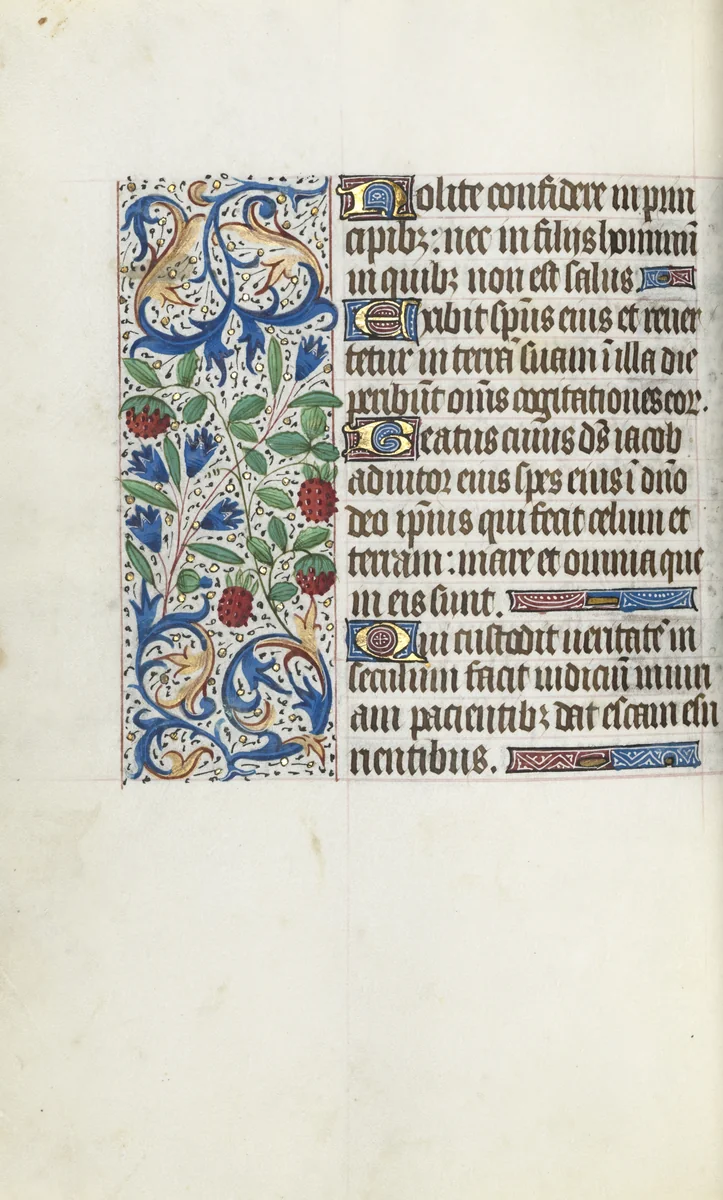 Nolite confidere in prin
cipibꝫ: nec in filijs hominũ
in quibꝫ non est salus
Exibit sp̃us eius et reuer
tetur in terrã suam ĩ illa die
peribũt om̃s cogitationes eoꝝ.
Beatus cuius d̃s iacob
adiutor eius spes eius ĩ dño
deo ip̃ius qui fecit celum et
terram: mare et omnia que
in eis sunt.
Qui custodit ueritatẽ in
seculum facit iudiciũ iniuri
am pacientibꝫ dat escam esu
rientibus.